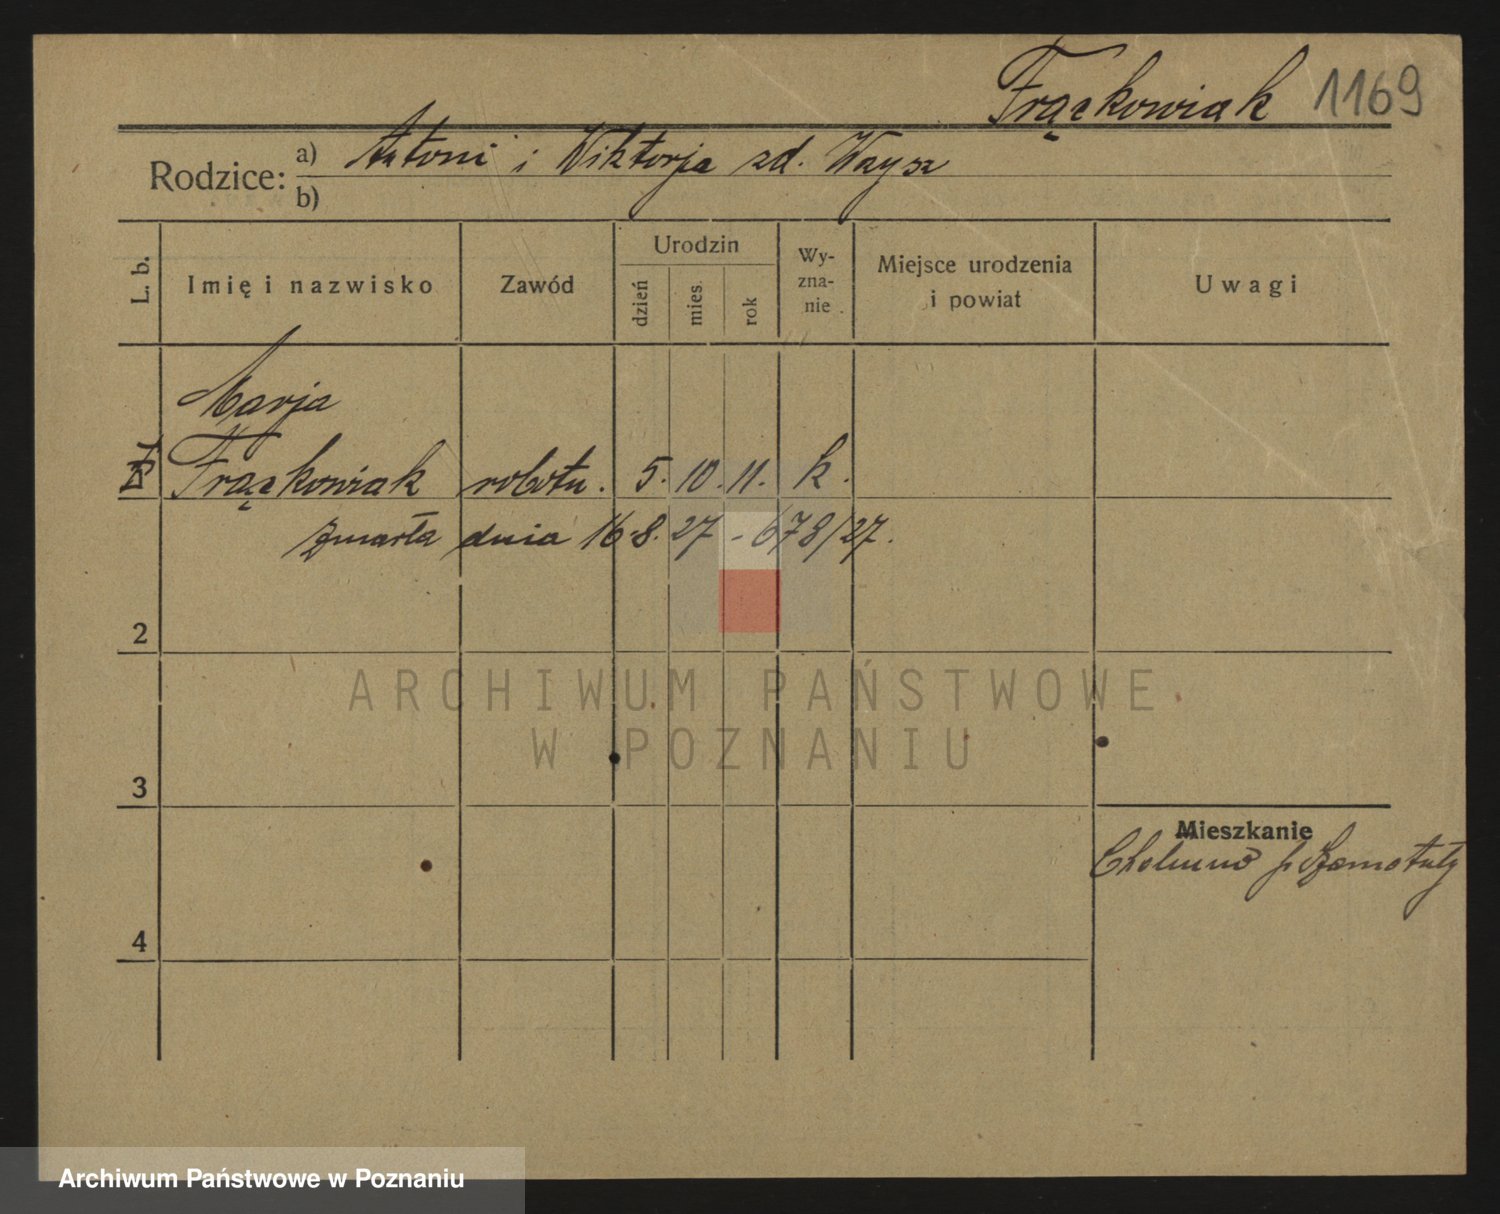 Frąckowiak 1169
Rodzice: a) Antoni i Wiktorja zd.
b)
L. b.
Imię i nazwisko
Zawód
Urodzin
dzień
mies.
rok
Wy-
zna-
nie
Miejsce urodzenia
i powiat
Uwagi
Marja
Frąckowiak robotn. 5. 10. 11. k.
zmarła dnia 16.8.27 - 678/27.
2
ARCHIWUM PAŃSTWOWE
W POZNANIU
3
Mieszkanie
p. Szamotuły
4
Archiwum Państwowe w Poznaniu